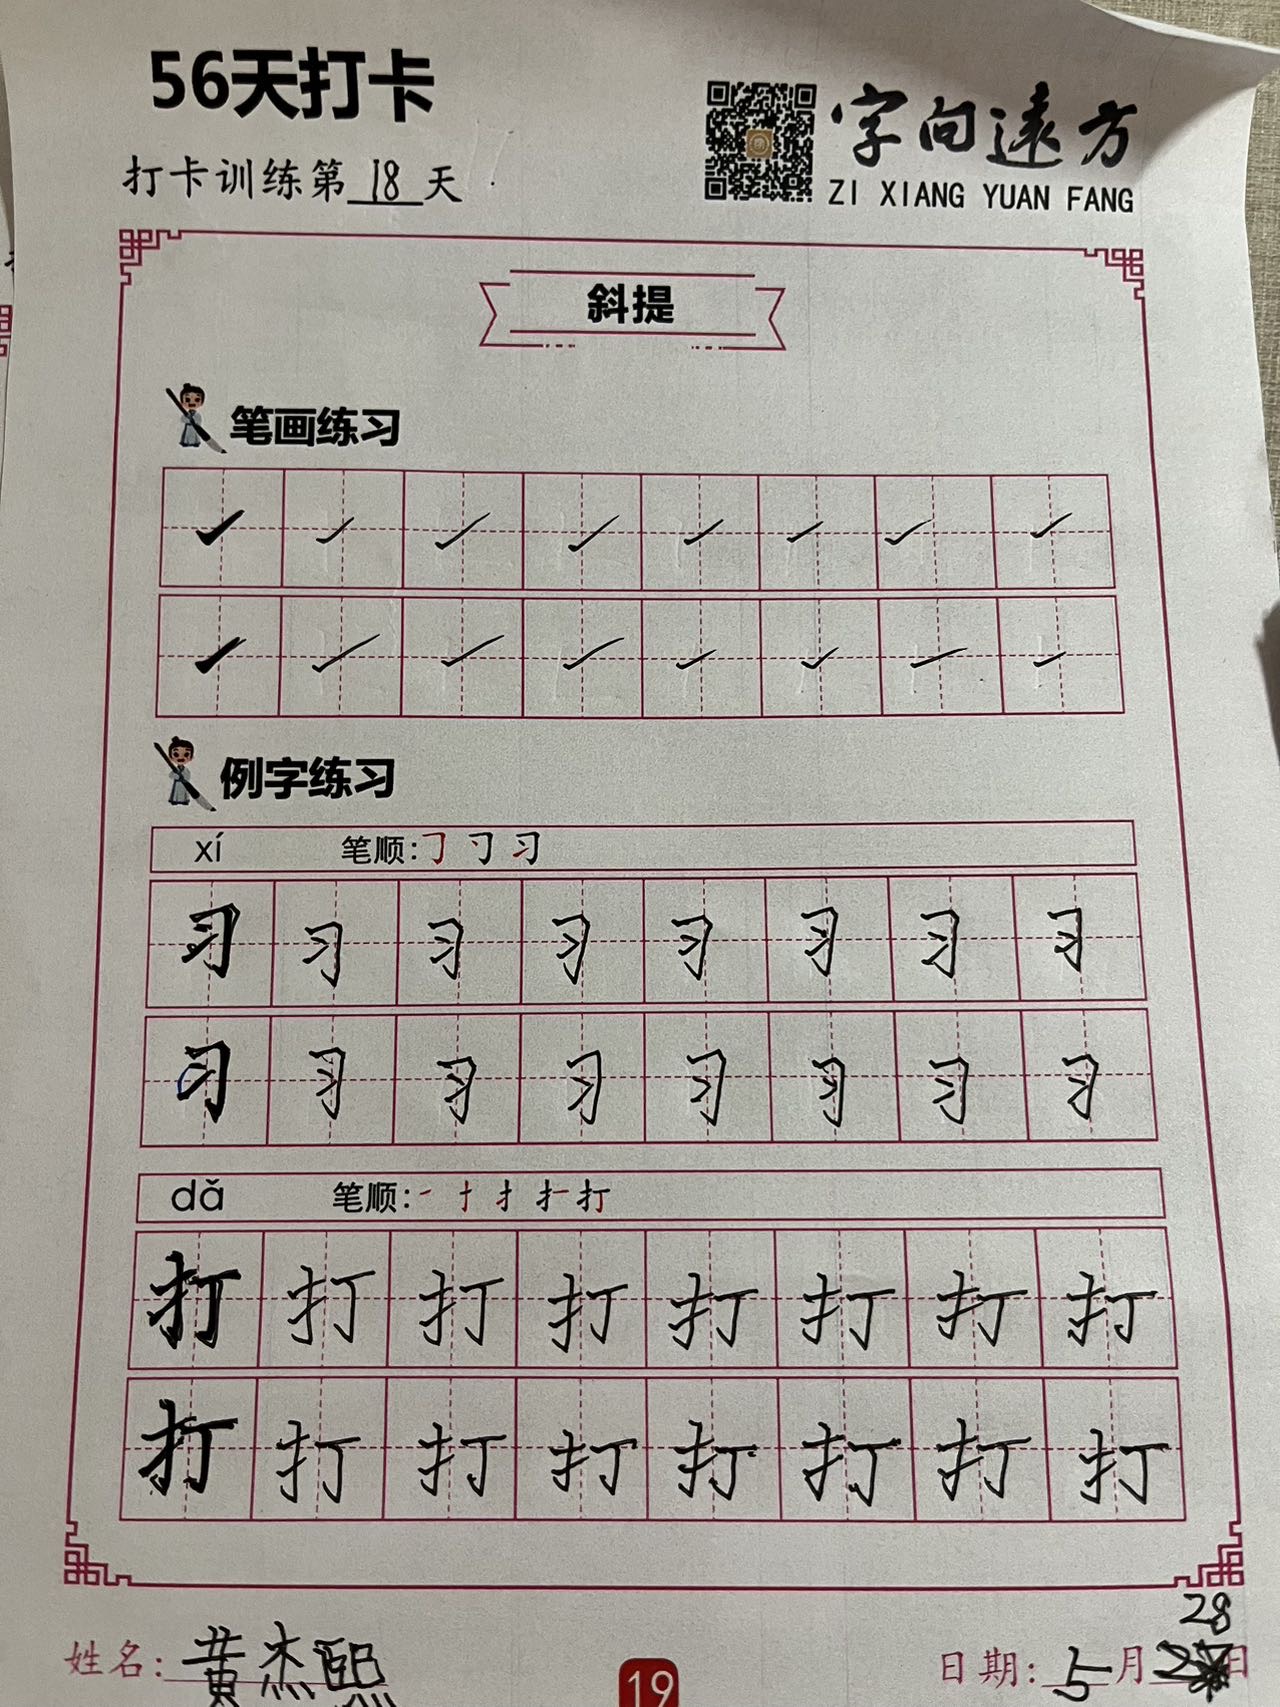 56天打卡
打卡训练第18天
字向遠方
ZI XIANG YUAN FANG
斜提
笔画练习
例字练习
xí 笔顺:㇆ 习
习 习 习 习 习 习 习 习
习 习 习 习 习 习 习 习
dǎ 笔顺:一 扌 打
打 打 打 打 打 打 打 打
打 打 打 打 打 打 打 打
28
姓名:黄杰熙 19 日期:5月日